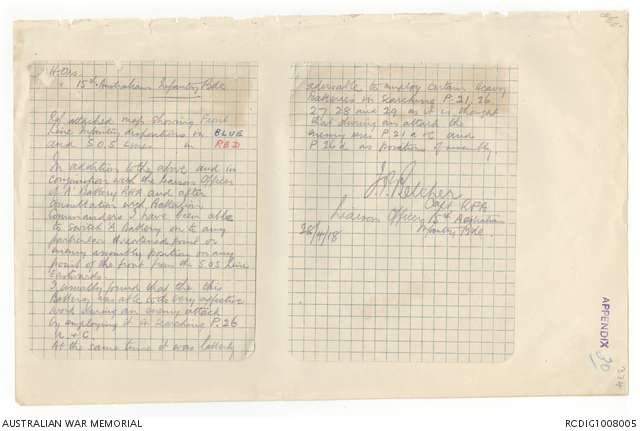 H.Qrs.
15th Australian Infantry Bde
Ref attached map showing Front
Line Infantry dispositions in BLUE
and S.O.S Lines in RED
In addition to the above and in
conjunction with the Liaison Officer
of 'A' Battery RHA and after
consultation with Battalion
Commanders I have been able
to switch 'A' Battery on to any
particular threatened point or
enemy assembly position on any
point of the front from the S.O.S line
Eastwards.
I usually found that the this
Battery was able to do very effective
work during an enemy attack
by employing it in searching P.26
a & c.
At the same time it was latterly
advisable to employ certain Heavy
Batteries in searching P.21, 26
27, 28 and 29 as it is thought
that during an attack the
enemy uses P 21 a & c and
P 26 d as positions of assembly.
Capt RFA
Liaison Officer 15th Australian
Infantry Bde
28/4/18
APPENDIX
30
334
AUSTRALIAN WAR MEMORIAL
RCDIG1008005